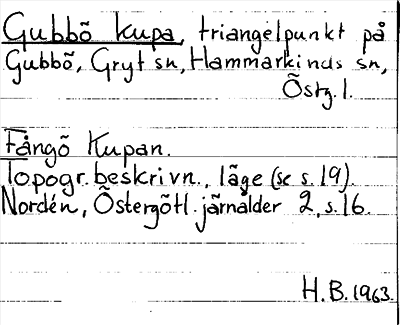 Gubbö kupa, triangelpunkt på
Gubbö, Gryt sn, Hammarkinds sn,
Östg. l.
Fångö Kupan.
Topogr. beskrivn., läge (se s. 19).
Nordén, Östergötl. järnålder 2, s. 16.
H. B. 1963.